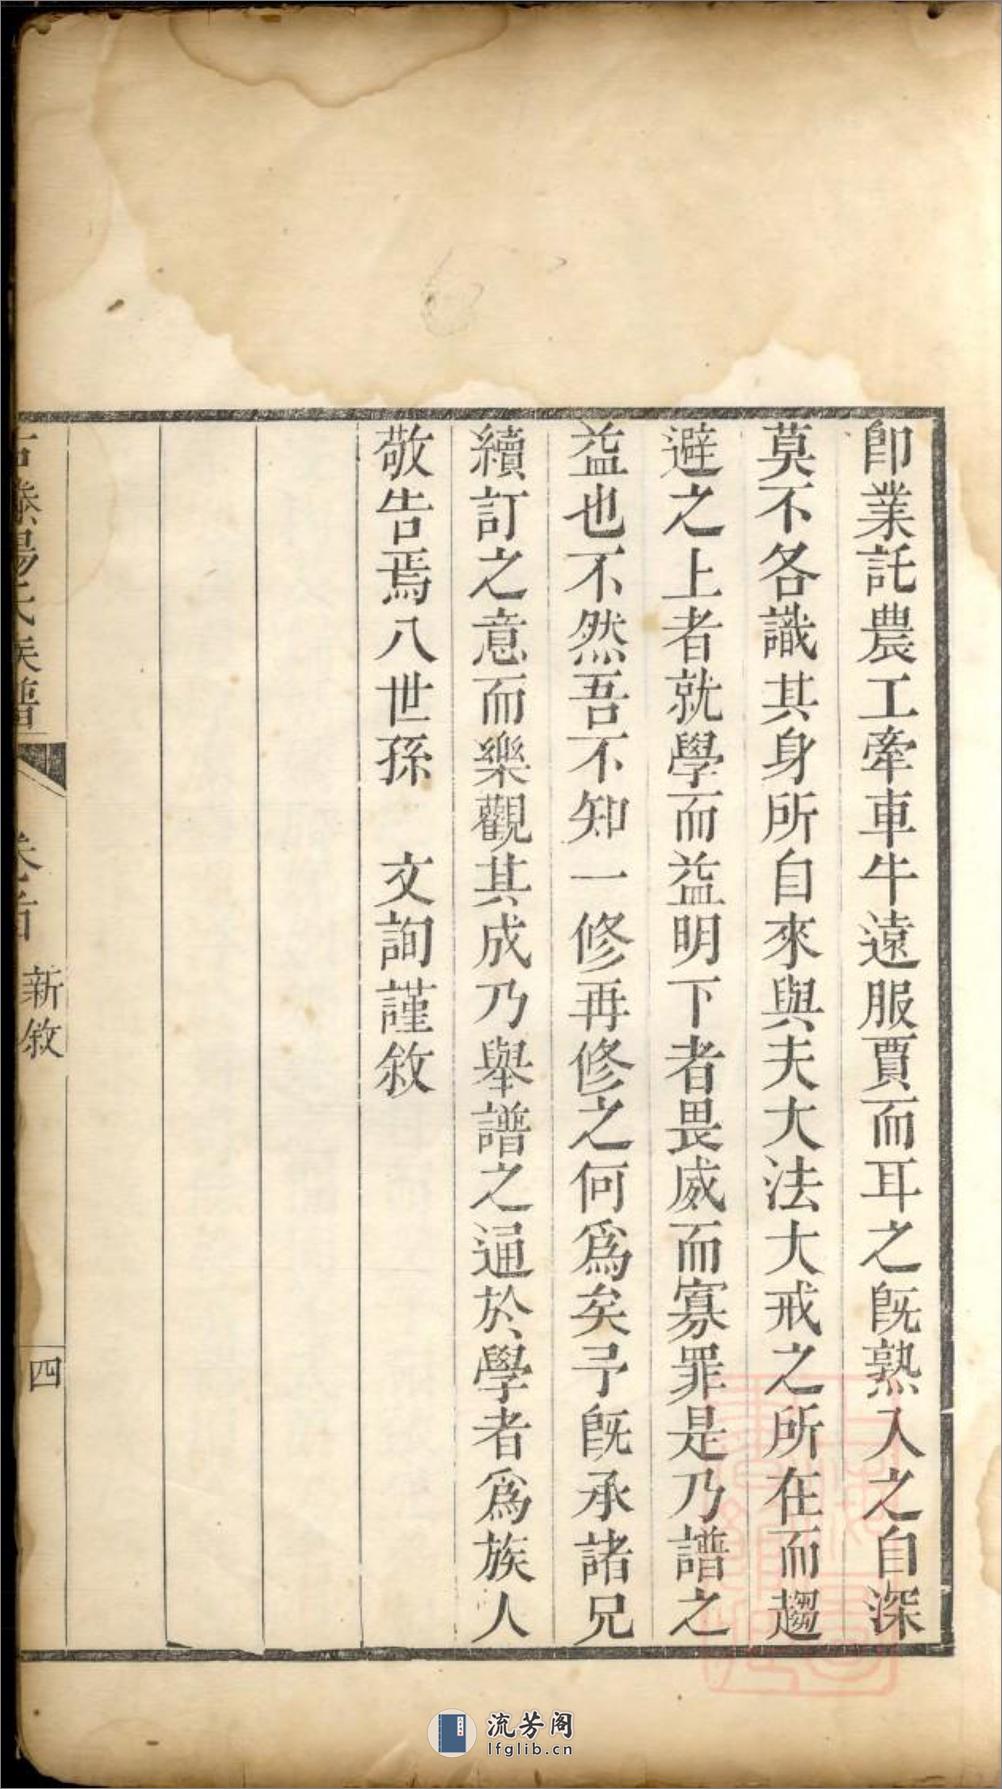 卽業託農工牽車牛遠服賈而耳之旣熟入之自深
莫不各識其身所自來與夫大法大戒之所在而趨
避之上者就學而益明下者畏威而寡罪是乃譜之
益也不然吾不知一修再修之何爲矣予旣承諸兄
續訂之意而樂觀其成乃舉譜之通於學者爲族人
敬告焉八世孫　文詢謹敘
滕楊氏族譜　卷首　新敘　四
流芳阁
lfglib.cn